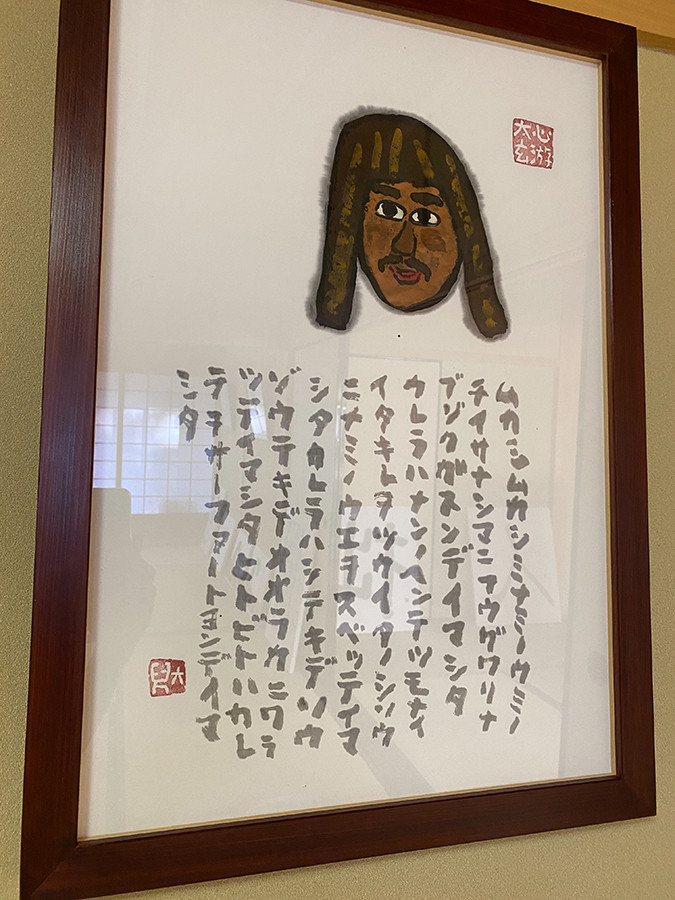 心游
太玄
ムカシムカシミナミノウミノ
チイサナシマニフウガワリナ
ブゾクガスンデイマシタ
カレラハナンノヘンテツモナイ
イタキレヲツカイタノシソウ
ニナミノウエヲスベッテイマ
シタカレラハシテキデソウ
ゾウテキデオオラカニワラ
ッテイマシタヒトビトハカレ
ラヲサーファートヨンデイマ
シタ